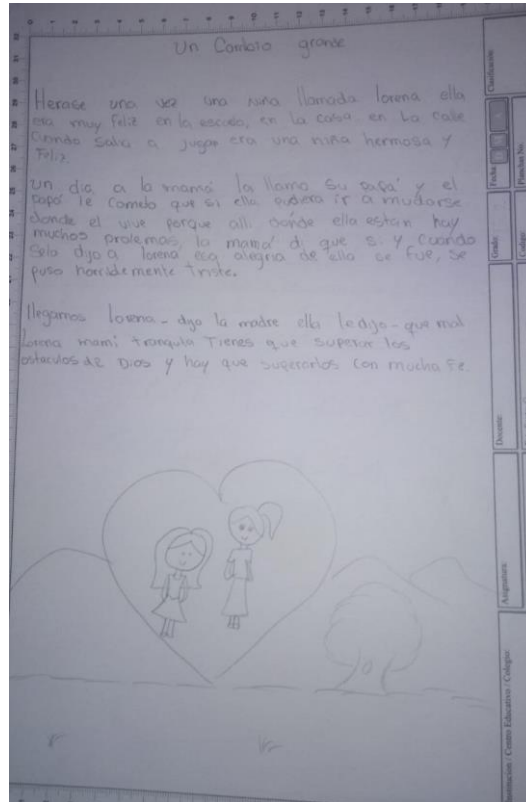 Un Cambio grande
Herase una vez una niña llamada lorena ella
era muy feliz en la escuela, en la casa en La calle
cuando salia a jugar era una niña hermosa y
Feliz.
un dia a la mamá la llamo su papá y el
papá le comdo que si ella pudiera ir a mudarse
donde el vive porque alli donde ella estan hay
muchos prolemas, la mamá di que si y cuando
selo dijo a lorena esa alegria de ella se fue, se
puso horridemente triste.
llegamos lorena - dijo la madre ella le dijo - que mal
lorena mami tranquila Tienes que superar los
ostaculos de Dios y hay que superarlos con mucha Fe.
Calificación:
Fecha
Grado:
Código:
Plancha No.
Docente:
Asignatura:
Institucion / Centro Educativo / Colegio: